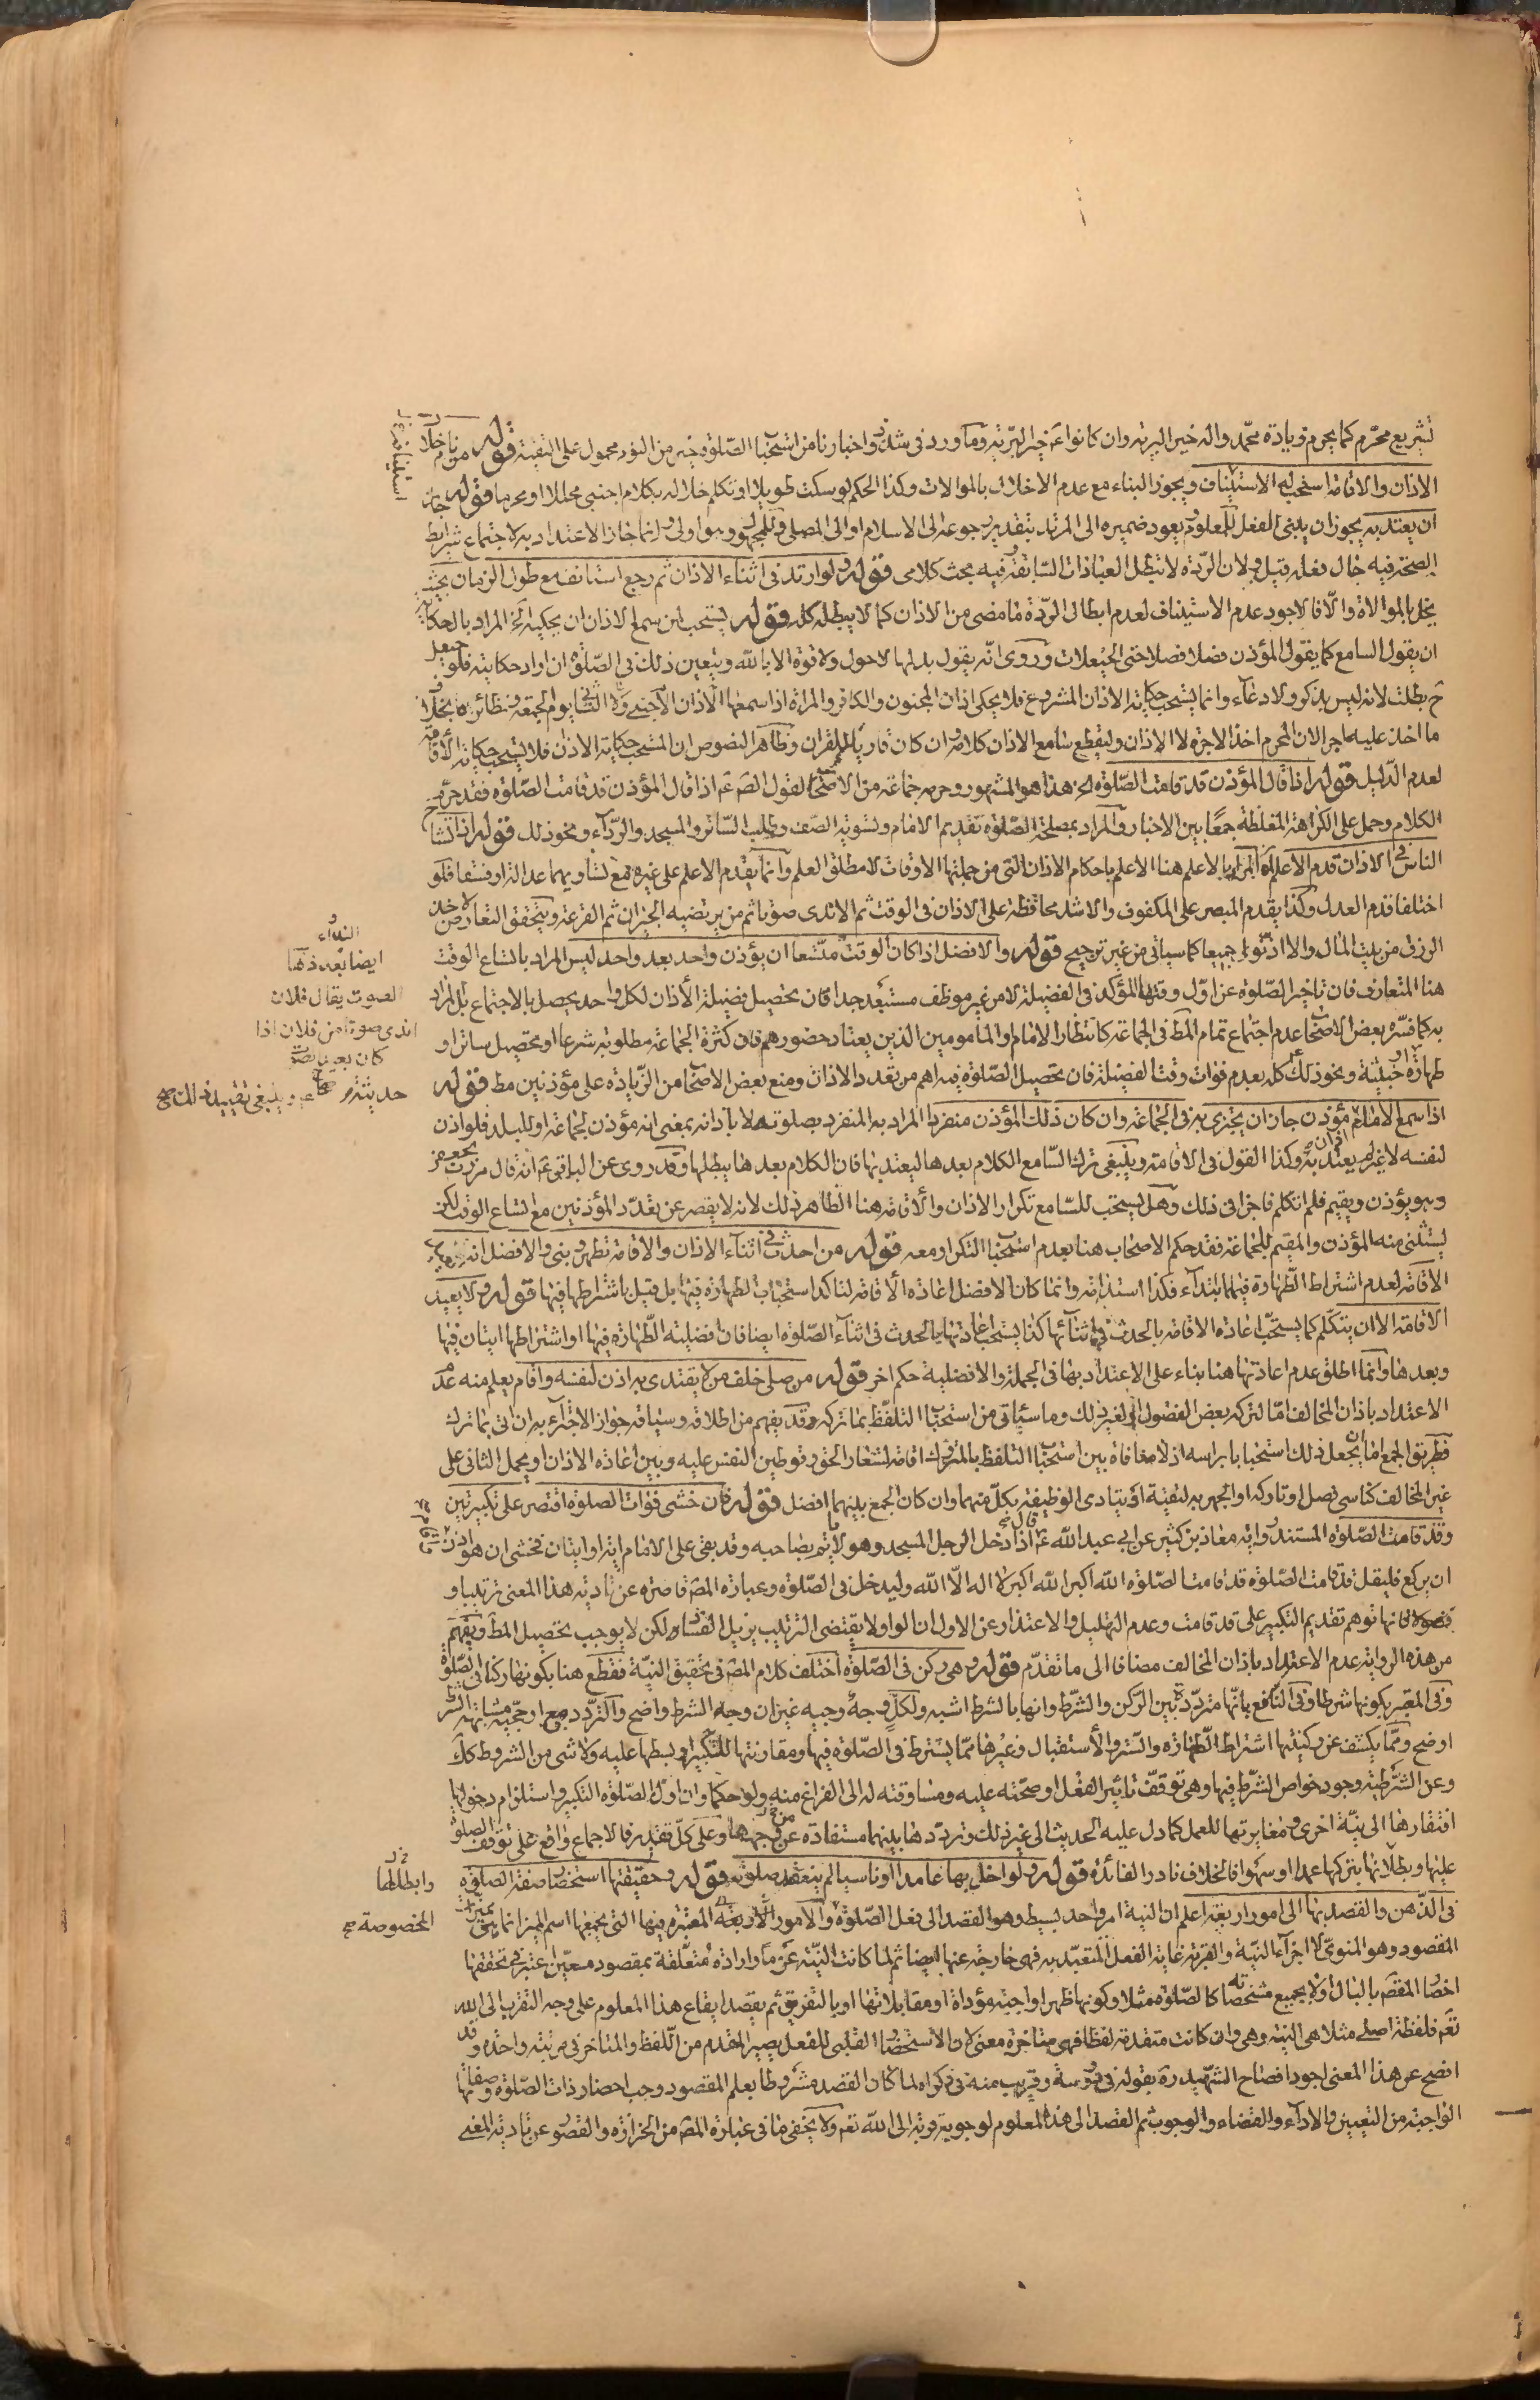 تشريع محرّم كما يحرم زيادة محمّد واله خير البرية وان كانوا عَ خير البرّية وما ورد فى شذوذ اخبارنا من استحباب الصّلوة خير من النوم محمول على التقية قوله من نام خلال
الاذان والاقامة استحب له الاستيناف ويجوز البناء مع عدم الاخلال بالموالات وكذا الحكم لو سكت طويلا او تكلم خلاله بكلام اجنبى محللا او محرما قوله جاز
ان يعتد به يجوز ان يبنى الفعل للمعلوم ويعود ضميره الى المرتد بتقدير رجوعه الى الاسلام او الى المصلى وللمجهول وهو اولى وانما جاز الاعتداد به لاجتماع شرايط
الصحّة فيه حال فعله قيل ولان الرّدة لا تبطل العبادات السّابقة وفيه بحث كلامى قوله ولو ارتد فى اثناء الاذان ثم رجع استانف مع طول الزمان بحيث
يخل بالموالاة والّا فالاجود عدم الاستيناف لعدم ابطال الرّدة ما مضى من الاذان كما لا يبطله كله قوله يستحب لمن سمع الاذان ان يحكيه الخ المراد بالحكاية
ان يقول السامع كما يقول المؤذن فصلا فصلا حتى الحيعلات وروى انّه يقول بدلها لاحول ولا قوة الا بالله ويتعين ذلك فى الصّلوة ان اراد حكايته فلو حيعل
ح بطلت لانه ليس بذكر ولا دعاء وانما يستحب حكاية الاذان المشروع فلا يحكى اذان المجنون والكافر والمراة اذا سمعها الاجنبى ولا الثانى يوم الجمعة ونظائره بخلاف
ما اخذ عليه اجرا لان المحرم اخذ الاجرة لا الاذان وليقطع سامع الاذان كلامه وان كان قاريا للقران وظاهر النصوص ان المستحب حكاية الاذان فلا يستحب حكاية الاقامة
لعدم الدّليل قوله اذا قال المؤذن قد قامت الصّلوة الخ هذا هو المشهور وحرمه جماعة من الاصحاب لقول الصَم عَم اذا قال المؤذن قد قامت الصّلوة فقد حرم ح
الكلام وحمل على الكراهة المغلظة جمعًا بين الاخبار والمراد بمصلحة الصّلوة تقديم الامام وتسوية الصّف وطلب السّاتر والمسجد والرّداء ونحو ذلك قوله اذا تشاح
الناس فى الاذان قدم الاعلم المراد بالاعلم هنا الاعلم باحكام الاذان التى من جملتها الاوقات لا مطلق العلم وانما يقدم الاعلم على غيره مع تساويهما عدالة او فسقا فلو
اختلفا قدم العدل وكذا يقدم المبصر على المكفوف والاشد محافظة على الاذان فى الوقت ثم الاندى صوتا ثم من يرتضيه الجيران ثم القرعة ويتحقق التعارض عند
الرزق من بيت المال والا اذنوا جميعا كما سياتى من غير ترجيح قوله والافضل اذا كان الوقت متّسعا ان يؤذن واحد بعد واحد ليس المراد باتساع الوقت
هنا المتعارف فان تاخير الصّلوة عن اوّل وقتها المؤكد فى الفضيلة لامر غير موظف مستبعد جدا فان تحصيل فضيلة الأذان لكل واحد يحصل بالاجتماع بل المراد
به كما فسّره بعض الاصحاب عدم اجتماع تمام المط فى الجماعة كانتظار الامام والمامومين الذين يعتاد حضورهم فان كثرة الجماعة مطلوبة شرعا او تحصيل ساتر او
طهارة خبثية ونحو ذلك كله بعدم فوات وقت الفضيلة فان تحصيل الصّلوة فيه اهم من تعدد الاذان ومنع بعض الاصحاب من الزّيادة على مؤذنين مط قوله
اذا سمع الامام مؤذن جاز ان يجتزى به فى الجماعة وان كان ذلك المؤذن منفردا المراد به المنفرد بصلوته لا باذانه بمعنى انه مؤذن لجماعة او للبلد فلو اذن
لنفسه لا غير لم يعتد به وكذا القول فى الاقامة وينبغى ترك السّامع الكلام بعدها ليعتد بها فان الكلام بعدها يبطلها وقد روى عن الباقر عَم انه قال مررت بجعفر
وهو يؤذن ويقيم فلم اتكلم فاجزانى ذلك وهل يستحب للسّامع تكرار الاذان والاقامة هنا الظاهر ذلك لانه لا يقصر عن تعدّد المؤذنين مع اتساع الوقت لكن
يستثنى منه المؤذن والمقيم للجماعة فقد حكم الاصحاب هنا بعدم استحباب التكرار معه قوله من احدث فى اثناء الاذان والاقامة تطهر وبنى والافضل انه يعيد
الاقامة لعدم اشتراط الطّهارة فيهما ابتداء فكذا استدامة وانما كان الافضل اعادة الاقامة لتاكد استحباب الطهارة فيها بل قيل باشتراطها فيها قوله ولا يعيد
الاقامة الا ان يتكلّم كما يستحبّ اعادة الاقامة بالحدث فى اثنائها كذا يستحب اعادتها بالحدث فى اثناء الصّلوة ايضا فان افضلية الطّهارة فيها او اشتراطها اتيان فيها
وبعدها وانما اطلق عدم اعادتها هنا بناء على الاعتداد بها فى الجملة والافضلية حكم اخر قوله من صلى خلف من لا يقتدى به اذن لنفسه واقام يعلم منه عدم
الاعتداد باذان المخالف امّا لتركه بعض الفصول او لغير ذلك وما سياتى من استحباب التلفّظ بما تركه وقد يفهم من اطلاقه وسياقه جواز الاجتزاء به ان اتى بما ترك
فطريق الجمع اما بجعل ذلك استحبابا براسه اذ لا منافاة بين استحباب التلفظ بالمتروك اقامة لشعار الحق وتوطين النفس عليه وبين اعادة الاذان او يحمل الثانى على
غير المخالف كناسى فصل او تاركه او الجهر به لتقية او يتادى الوظيفة بكلّ منهما وان كان الجمع بينهما افضل قوله فان خشى فوات الصلوة اقتصر على تكبيرتين
وقد قامت الصّلوة المستند رواية معاذ بن كثير عن ابى عبد الله عَم قال اذا دخل الرجل المسجد وهو لا يتم بصاحبه وقد بقى على الامام اية او ايتان فخشى ان هو اذن
ان يركع فليقل قد قامت الصّلوة قد قامت الصّلوة الله اكبر الله اكبر لا اله الّا الله وليدخل فى الصّلوة وعبارة المصَ قاصرة عن تادية هذا المعنى ترتيبا و
قصورا فانها توهم تقديم التكبير على قد قامت وعدم التهليل والاعتذار عن الاول ان الواو لا يقتضى الترتيب يزيل الفساد لكن لا يوجب تحصيل المط ويفهم
من هذه الرواية عدم الاعتداد باذان المخالف مضافا الى ما تقدّم قوله وهى ركن فى الصّلوة اختلف كلام المصَ فى تحقيق النيّة فقطع هنا بكونها ركنا فى الصّلوة
وفى المعتبر بكونها شرطا وفى النافع بانّها متردّد بين الرّكن والشّرط وانها بالشرط اشبه ولكلّ وجهٌ وجيه غير ان وجه الشرط واضح والتردّد مع ارجحية مشابهة الشرط
اوضح وممّا يكشف عن ركنيتها اشتراط الطّهارة والسّتر والأستقبال وغيرها ممّا يشترط فى الصّلوة فيها ومقارنتها للتكبير او بسطها عليه ولا شئ من الشروط كك
وعن الشّرطية وجود خواص الشّرط فيها وهى توقّف تاثير الفعل او صحّته عليه ومساوقته له الى الفراغ منه ولو حكما وان اول الصّلوة التكبير واستلزام دخولها
افتقارها الى نيّة اخرى ومغايرتها للعمل كما دل عليه الحديث الى غير ذلك وتردّدها بينهما مستفادة عن وجهها وعلى كلّ تقدير فالاجماع واقع على توقف الصلوة
عليها وبطلانها بتركها عمدا وسهوا فالخلاف نادر الفائدة قوله ولو اخل بها عامدا او ناسيا لم ينعقد صلوته قوله وحقيقتها استحضار صفة الصلوة
فى الذّهن والقصد بها الى امور اربعة اعلم ان النية امر واحد بسيط وهو القصد الى فعل الصّلوة والامور الاربعة المعتبرة فيها التى يجمعها اسم المميز انما يتميز
المقصود وهو المنوى لا اجزاء النيّة والقربة غاية الفعل المتعبّد به فهى خارجة عنها ايضا ثم لما كانت النيّة عزما وارادة متعلّقة بمقصود معيّن اعتبر فى تحققها
احضار المقصَم بالبال اولا بجميع مشخصاته كالصّلوة مثلا وكونها ظهرا واجبة مؤداة او مقابلاتها او بالتفريق ثم يقصد ايقاع هذا المعلوم على وجه التقرب الى الله
تعَم فلفظة اصلى مثلا هى النية وهى وان كانت متقدمة لفظا فهى متاخرة معنى لان الاستحضار القلبى للفعل يصير المقدم من اللفظ والمتاخر فى مرتبة واحدة وقد
افصح عن هذا المعنى اجود افصاح الشّهيد ره بقوله فى دروسه وقريب منه فى ذكراه لما كان القصد مشروطا بعلم المقصود وجب احضار ذات الصّلوة وصفاتها
الواجبة من التعيين والاداء والقضاء والوجوب ثم القصد الى هذا المعلوم لوجوبه قربة الى الله تعَم ولا يخفى ما فى عبارة المصَ من الحزازة والقصور عن تادية المعنى
النداء
ايضا بعد ذهاب
الصوت يقال فلان
اندى صوتا من فلان اذا
كان بعيد الصوت
وابطالها
المخصوصة صح